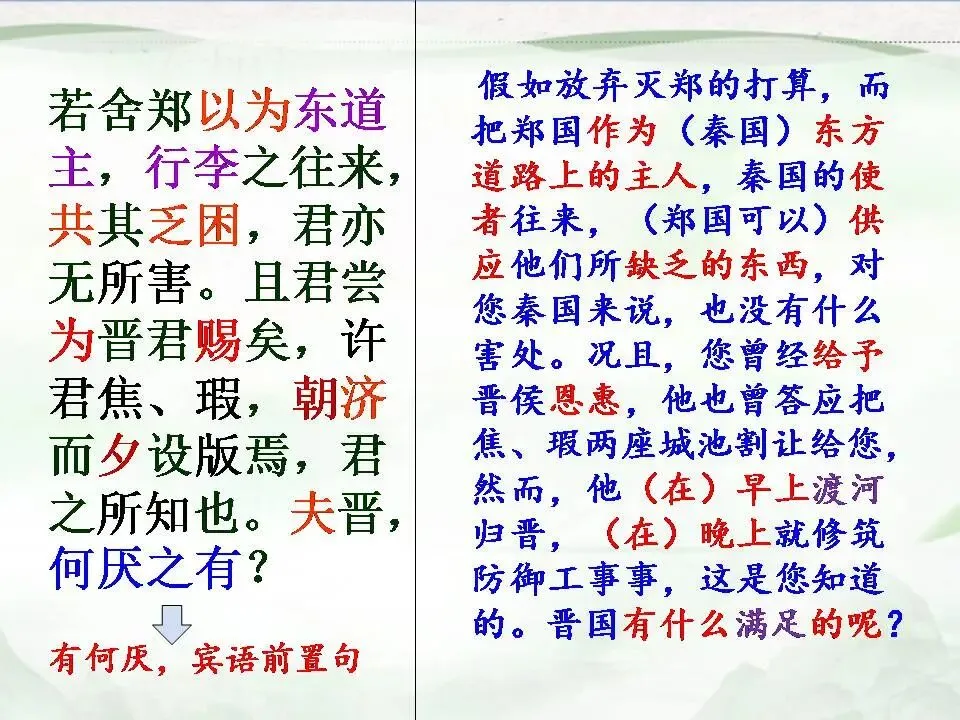 若舍郑以为东道
主，行李之往来，
共其乏困，君亦
无所害。且君尝
为晋君赐矣，许
君焦、瑕，朝济
而夕设版焉，君
之所知也。夫晋，
何厌之有？
有何厌，宾语前置句
假如放弃灭郑的打算，而
把郑国作为（秦国）东方
道路上的主人，秦国的使
者往来，（郑国可以）供
应他们所缺乏的东西，对
您秦国来说，也没有什么
害处。况且，您曾经给予
晋侯恩惠，他也曾答应把
焦、瑕两座城池割让给您，
然而，他（在）早上渡河
归晋，（在）晚上就修筑
防御工事事，这是您知道
的。晋国有什么满足的呢？